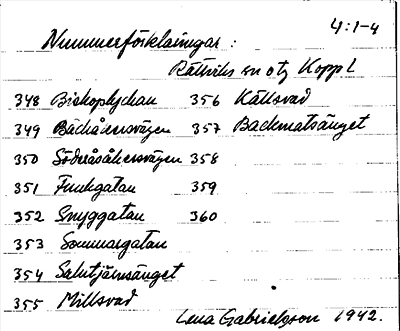 4:1-4
Nummerförklaringar:
Rättviks sn o tg Koppl
348 Biskoplyckan 356 Källsvad
349 Bäckåkersvägen 357 Backmatsänget
350 Söderåsåkersvägen 358
351 Funkgatan 359
352 Snyggatan 360
353 Sommargatan
354 Salutjärnsänget
355 Millsvad
Lena Gabrielsson 1942.